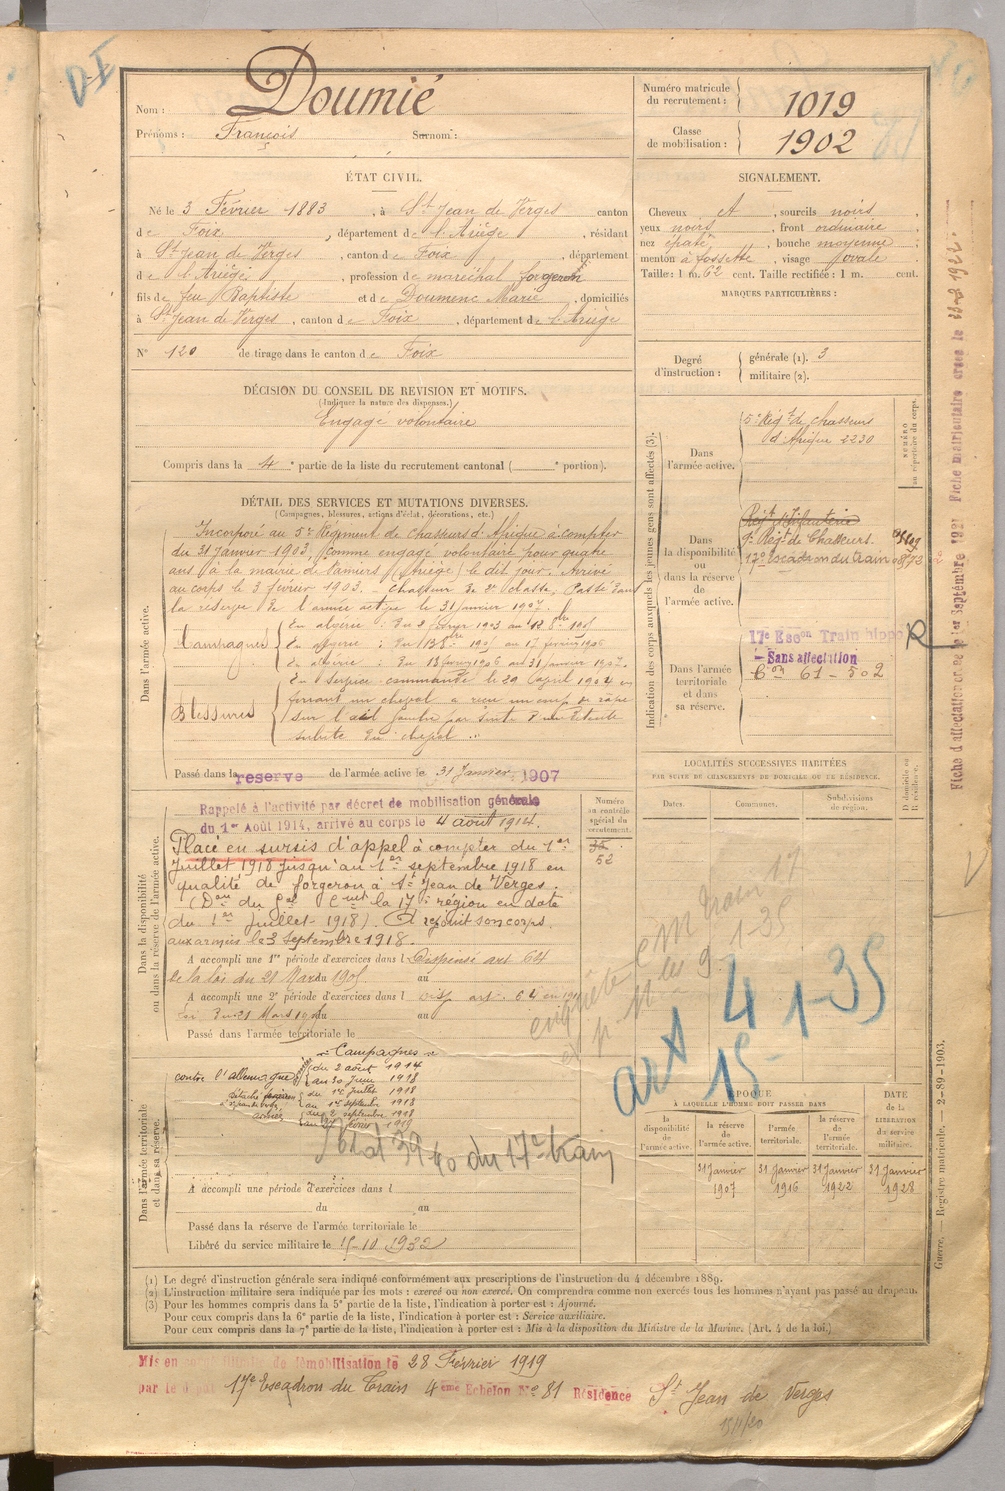 D-I
Nom : Doumié
Prénoms : François Surnom :
Numéro matricule du recrutement : 1019
Classe de mobilisation : 1902
ÉTAT CIVIL.
Né le 3 Février 1883, à St Jean de Verges canton
de Foix, département de l'Ariège, résidant
à St Jean de Verges, canton de Foix, département
de l'Ariège, profession de maréchal forgeron
fils de feu Baptiste et de Doumenc Marie, domiciliés
à St Jean de Verges, canton de Foix, département de l'Ariège
N° 120 de tirage dans le canton de Foix
SIGNALEMENT.
Cheveux , sourcils noirs,
yeux noirs, front ordinaire
nez épaté, bouche moyenne
menton à fossette, visage ovale
Taille : 1 m. 62 cent. Taille rectifiée : 1 m. cent.
MARQUES PARTICULIÈRES :
Degré d'instruction : générale (1). 3
militaire (2).
DÉCISION DU CONSEIL DE REVISION ET MOTIFS.
(Indiquer la nature des dispenses.)
Engagé volontaire
Compris dans la 4e partie de la liste du recrutement cantonal ( e portion).
DÉTAIL DES SERVICES ET MUTATIONS DIVERSES.
(Campagnes, blessures, actions d'éclat, décorations, etc.)
Dans l'armée active.
Incorporé au 5e Régiment de chasseurs d'Afrique à compter
du 31 janvier 1903, comme engagé volontaire pour quatre
ans à la mairie de Pamiers (Ariège) le dit jour. Arrivé
au corps le 3 février 1903. Chasseur de 2e classe, Passé dans
la réserve de l'armée active le 31 janvier 1907.
Campagnes
En algérie : Du 2 février 1903 au
En algérie : Du 1905 au 17 février 1906
En algérie : Du 18 février 1906 au 31 janvier 1907.
Blessures
En service commandé le 29 avril 1904 en
ferrant un cheval a reçu un coup de
sur l'œil gauche par suite d'une
subite du cheval.
Passé dans la réserve de l'armée active le 31 Janvier 1907
Dans la disponibilité ou dans la réserve de l'armée active.
Rappelé à l'activité par décret de mobilisation générale
du 1er Août 1914, arrivé au corps le 4 août 1914.
Placé en sursis d'appel à compter du 1er
Juillet 1918 jusqu'au 1er septembre 1918 en
qualité de forgeron à St Jean de Verges.
(Don du la 17e région en date
du 1er Juillet 1918). A rejoint son corps
aux armées le 3 Septembre 1918.
A accompli une 1re période d'exercices dans l Dispensé art 64
de la loi du 21 Mars 1905 au
A accompli une 2e période d'exercices dans l disp art. 64
Loi du 21 Mars 1905 au
Passé dans l'armée territoriale le
Numéro au contrôle spécial du recrutement.
52
Campagnes
contre l'allemagne
du 2 août 1914
au 30 Juin 1918
du 1er Juillet 1918
au 1er septembre 1918
du 2 septembre 1918
au février 1919
Dans l'armée territoriale et dans sa réserve.
du 17e train
A accompli une période d'exercices dans l
du au
Passé dans la réserve de l'armée territoriale le
Libéré du service militaire le 15-10 1932
Indication des corps auxquels les jeunes gens sont affectés (3).
Dans l'armée active.
5e Régt de chasseurs
d'Afrique 2230
NUMÉRO au répertoire du corps.
Dans la disponibilité ou dans la réserve de l'armée active.
Régt d'Infanterie
9e Régt de Chasseurs.
17e Escadron du train
Dans l'armée territoriale et dans sa réserve.
17e Escon Train hippo R
Sans affectation
61-502
LOCALITÉS SUCCESSIVES HABITÉES
PAR SUITE DE CHANGEMENTS DE DOMICILE OU DE RÉSIDENCE.
Dates.
Communes.
Subdivisions de région.
D domicile ou R résidence.
enquête
1-35
art 4
15-1-35
ÉPOQUE
À LAQUELLE L'HOMME DOIT PASSER DANS
la disponibilité de l'armée active.
la réserve de l'armée active.
l'armée territoriale.
la réserve de l'armée territoriale.
DATE de la LIBÉRATION du service militaire.
31 Janvier 1907
31 Janvier 1916
31 Janvier 1922
31 Janvier 1928
(1) Le degré d'instruction générale sera indiqué conformément aux prescriptions de l'instruction du 4 décembre 1889.
(2) L'instruction militaire sera indiquée par les mots : exercé ou non exercé. On comprendra comme non exercés tous les hommes n'ayant pas passé au drapeau.
(3) Pour les hommes compris dans la 5e partie de la liste, l'indication à porter est : Ajourné.
Pour ceux compris dans la 6e partie de la liste, l'indication à porter est : Service auxiliaire.
Pour ceux compris dans la 7e partie de la liste, l'indication à porter est : Mis à la disposition du Ministre de la Marine. (Art. 4 de la loi.)
Guerre. — Registre matricule. — 2-89-1903.
Mis en de démobilisation le 28 Février 1919
par le 17e Escadron du Train 4eme Echelon No 81 Résidence St Jean de Verges